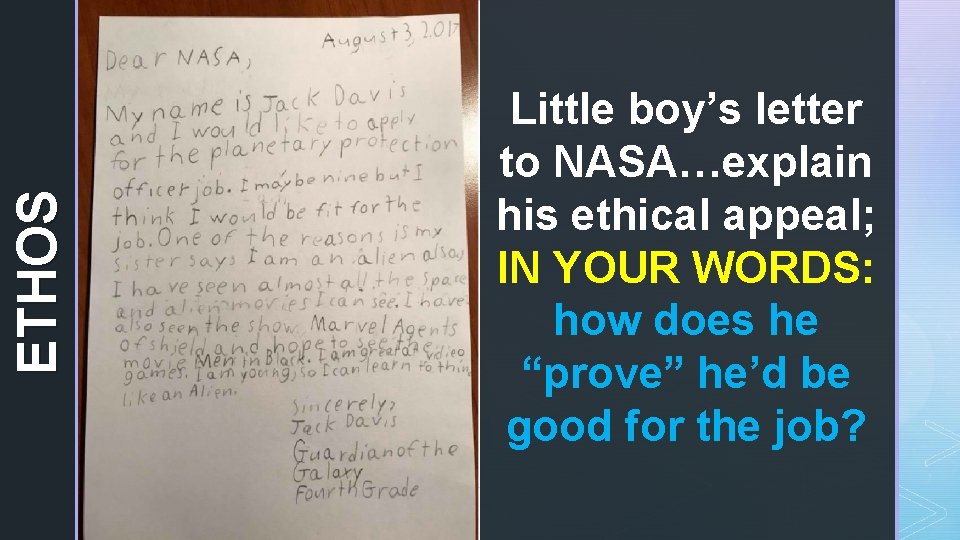 ETHOS
August 3, 2017
Dear NASA,
My name is Jack Davis
and I would like to apply
for the planetary protection
officer job. I may be nine but I
think I would be fit for the
job. One of the reasons is my
sister says I am an alien also,
I have seen almost all the space
and alien movies I can see. I have
also seen the show Marvel Agents
of Shield and hope to see the
movie Men in Black. I am great at vidieo
games. I am young, so I can learn to think
like an Alien.
Sincerely,
Jack Davis
Guardian of the
Galaxy
Fourth Grade
Little boy’s letter
to NASA…explain
his ethical appeal;
IN YOUR WORDS:
how does he
“prove” he’d be
good for the job?
z